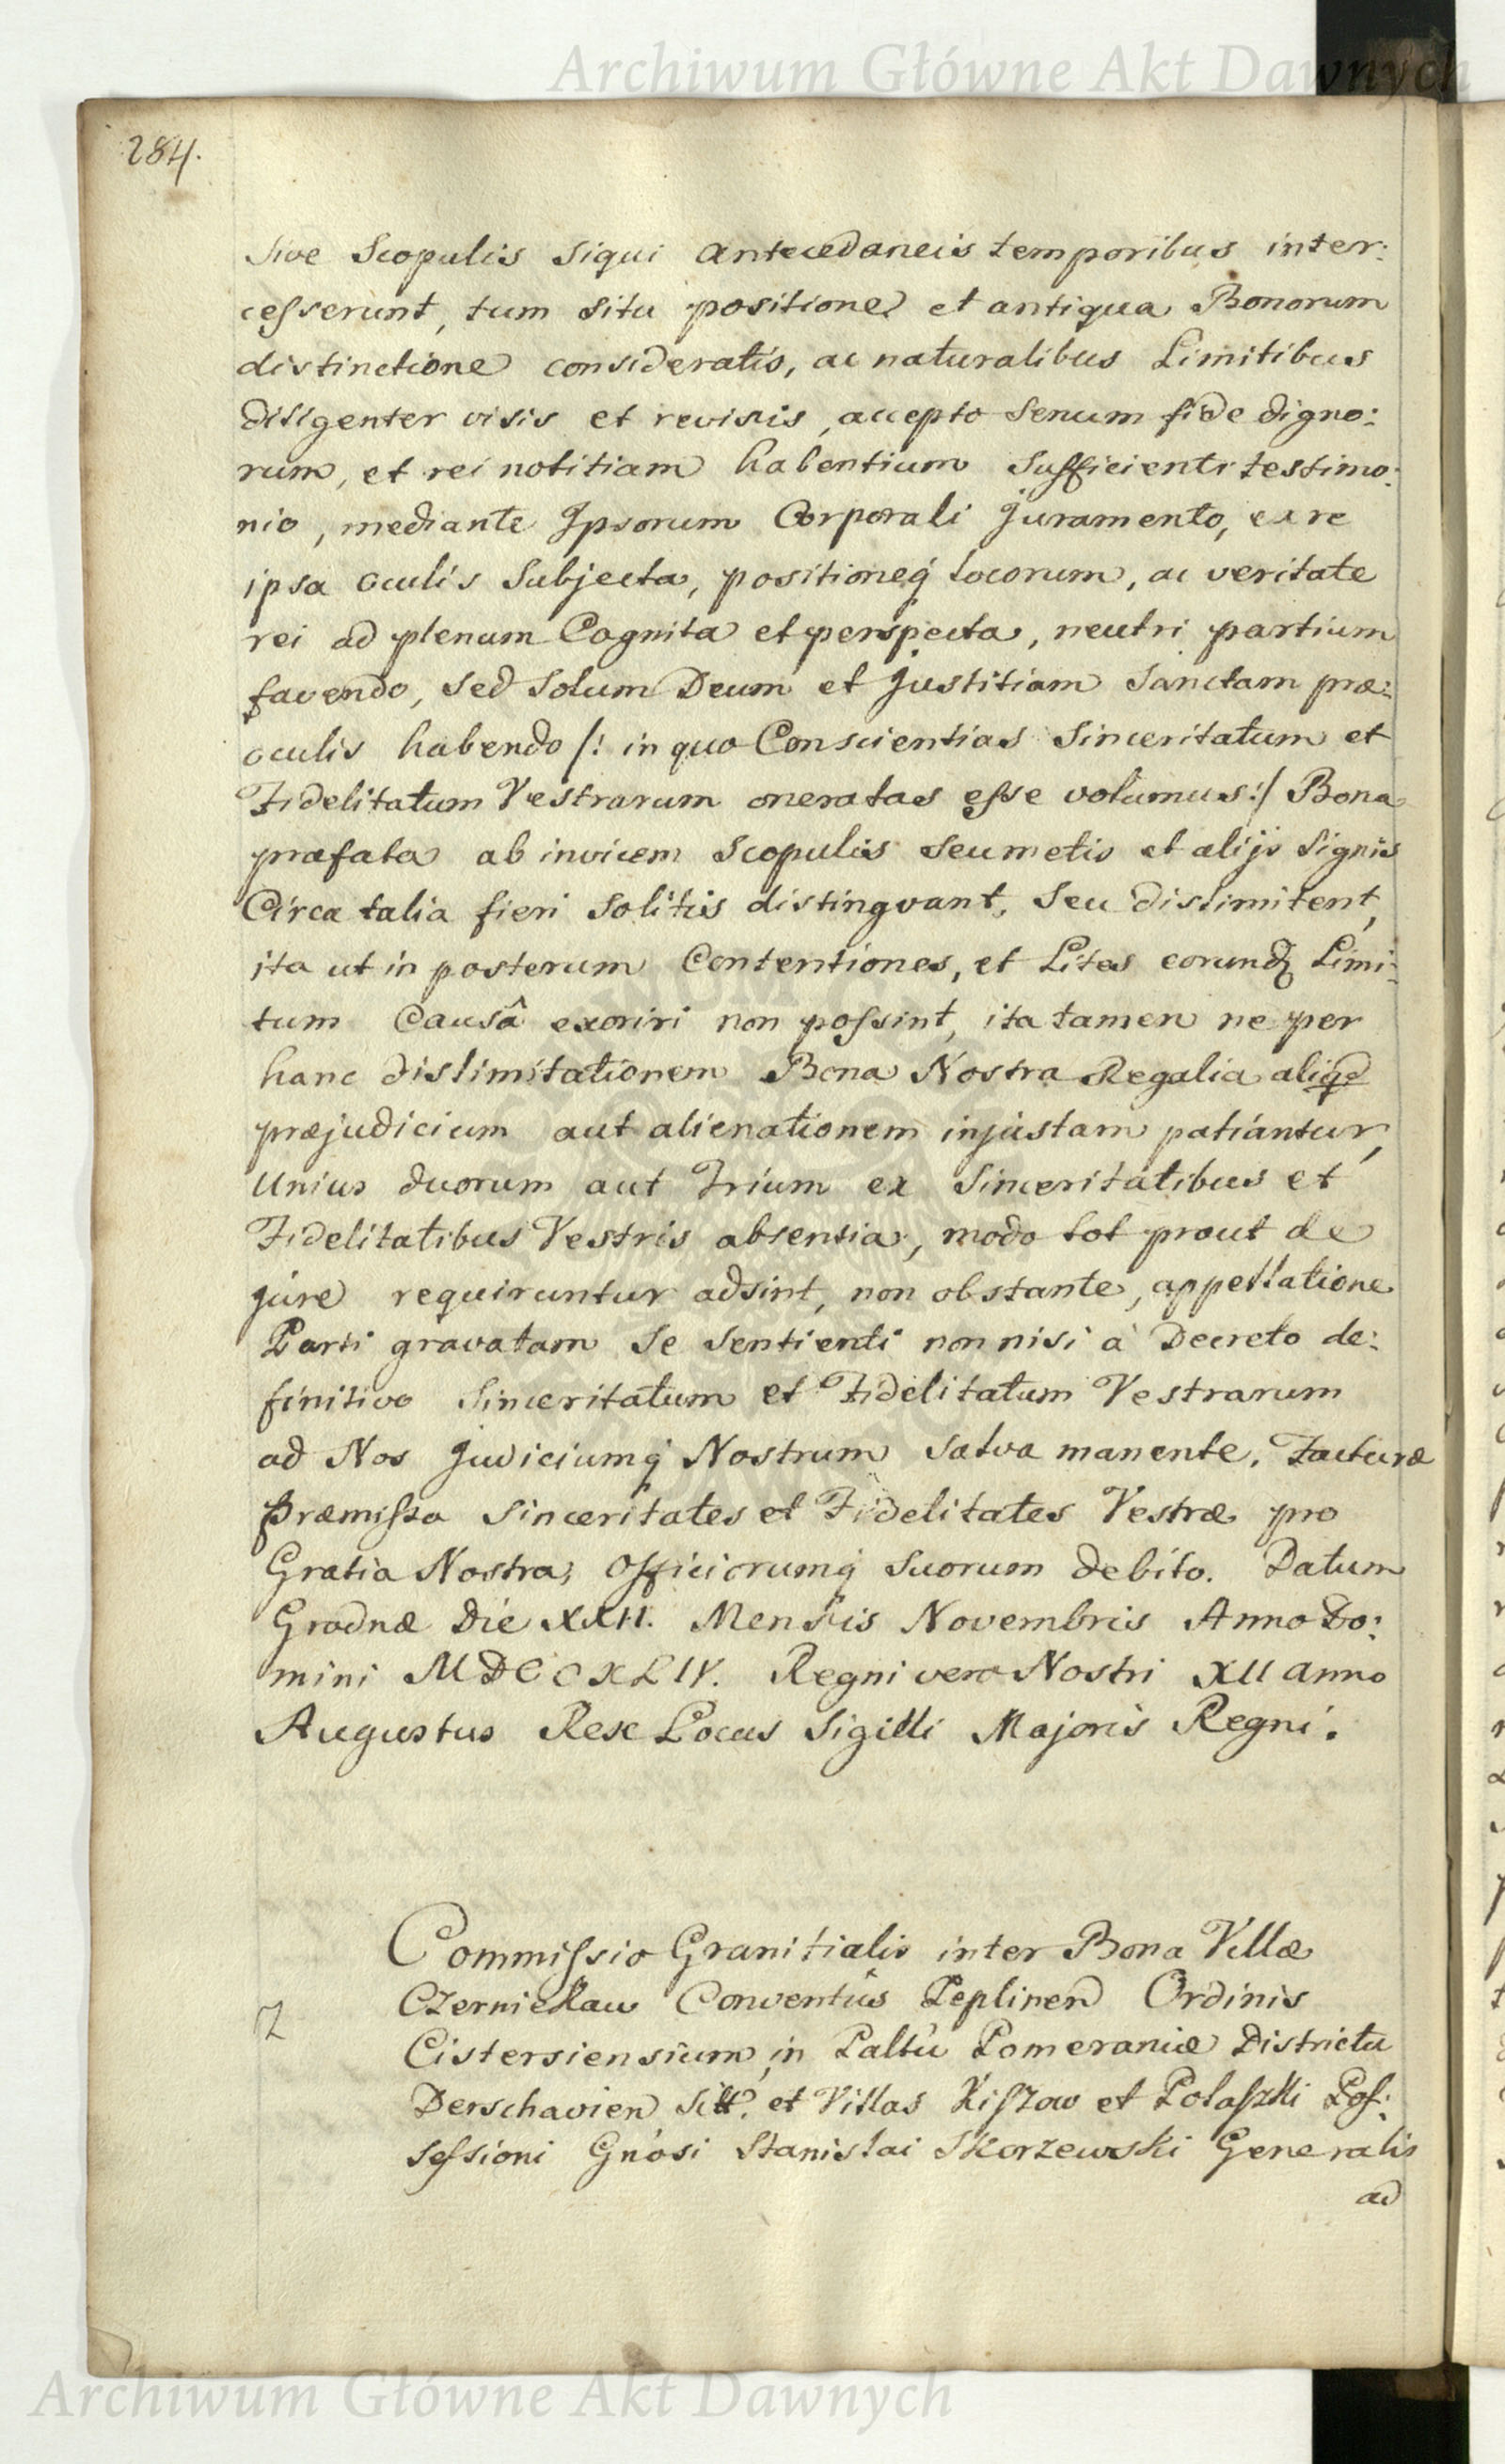 Archiwum Główne Akt Dawnych
284.
sive Scopulis siqui antecedaneis temporibus inter:
cesserunt, tum situ positione et antiqua Bonorum
distinctione consideratis, ac naturalibus Limitibus
diligenter visis et revisis, accepto Senum fide digno:
rum, et rei notitiam habentium Sufficienti testimo:
nio, mediante Ipsorum Corporali Juramento, ex re
ipsa oculis Subjecta, positioneq locorum, ac veritate
rei ad plenum Cognita et perspecta, neutri partium
favendo, sed Solum Deum et Justitiam Sanctam præ:
oculis habendo /: in quo Conscientias Sinceritatum et
Fidelitatum Vestrarum oneratas esse volumus:/ Bona
præfata ab invicem Scopulis seu metis et alijs Signis
Circa talia fieri Solitis distingvant, Seu dislimitent,
ita ut in posterum Contentiones, et Lites eorundq Limi:
tum Causâ exoriri non possint, ita tamen ne per
hanc dislimitationem Bona Nostra Regalia aliqd
præjudicium aut alienationem injustam patiantur,
Unius duorum aut Trium ex Sinceritatibus et
Fidelitatibus Vestris absentia, modo tot prout de
jure requiruntur adsint, non obstante, appellatione
Parti gravatam Se Sentienti non nisi à Decreto de:
finitivo Sinceritatum et Fidelitatum Vestrarum
ad Nos Judiciumq Nostrum Salva manente. Facturæ
Præmissa Sinceritates et Fidelitates Vestræ pro
Gratia Nostra, Officiorumq Suorum debito. Datum
Grodnæ Die XXII. Mensis Novembris Anno Do:
mini MDCCXLIV. Regni vero Nostri XII anno
Augustus Rex Locus Sigilli Majoris Regni.
Commissio Granitialis inter Bona Villæ
Czernickau Conventûs Peplinen Ordinis
Cistersiensium, in Paltu Pomeraniæ Districtu
Derschavien Sitt. et Villas Kiszow et Polaszki Pos:
sessioni Gnosi Stanislai Skorzewski Generalis
ad
Archiwum Główne Akt Dawnych